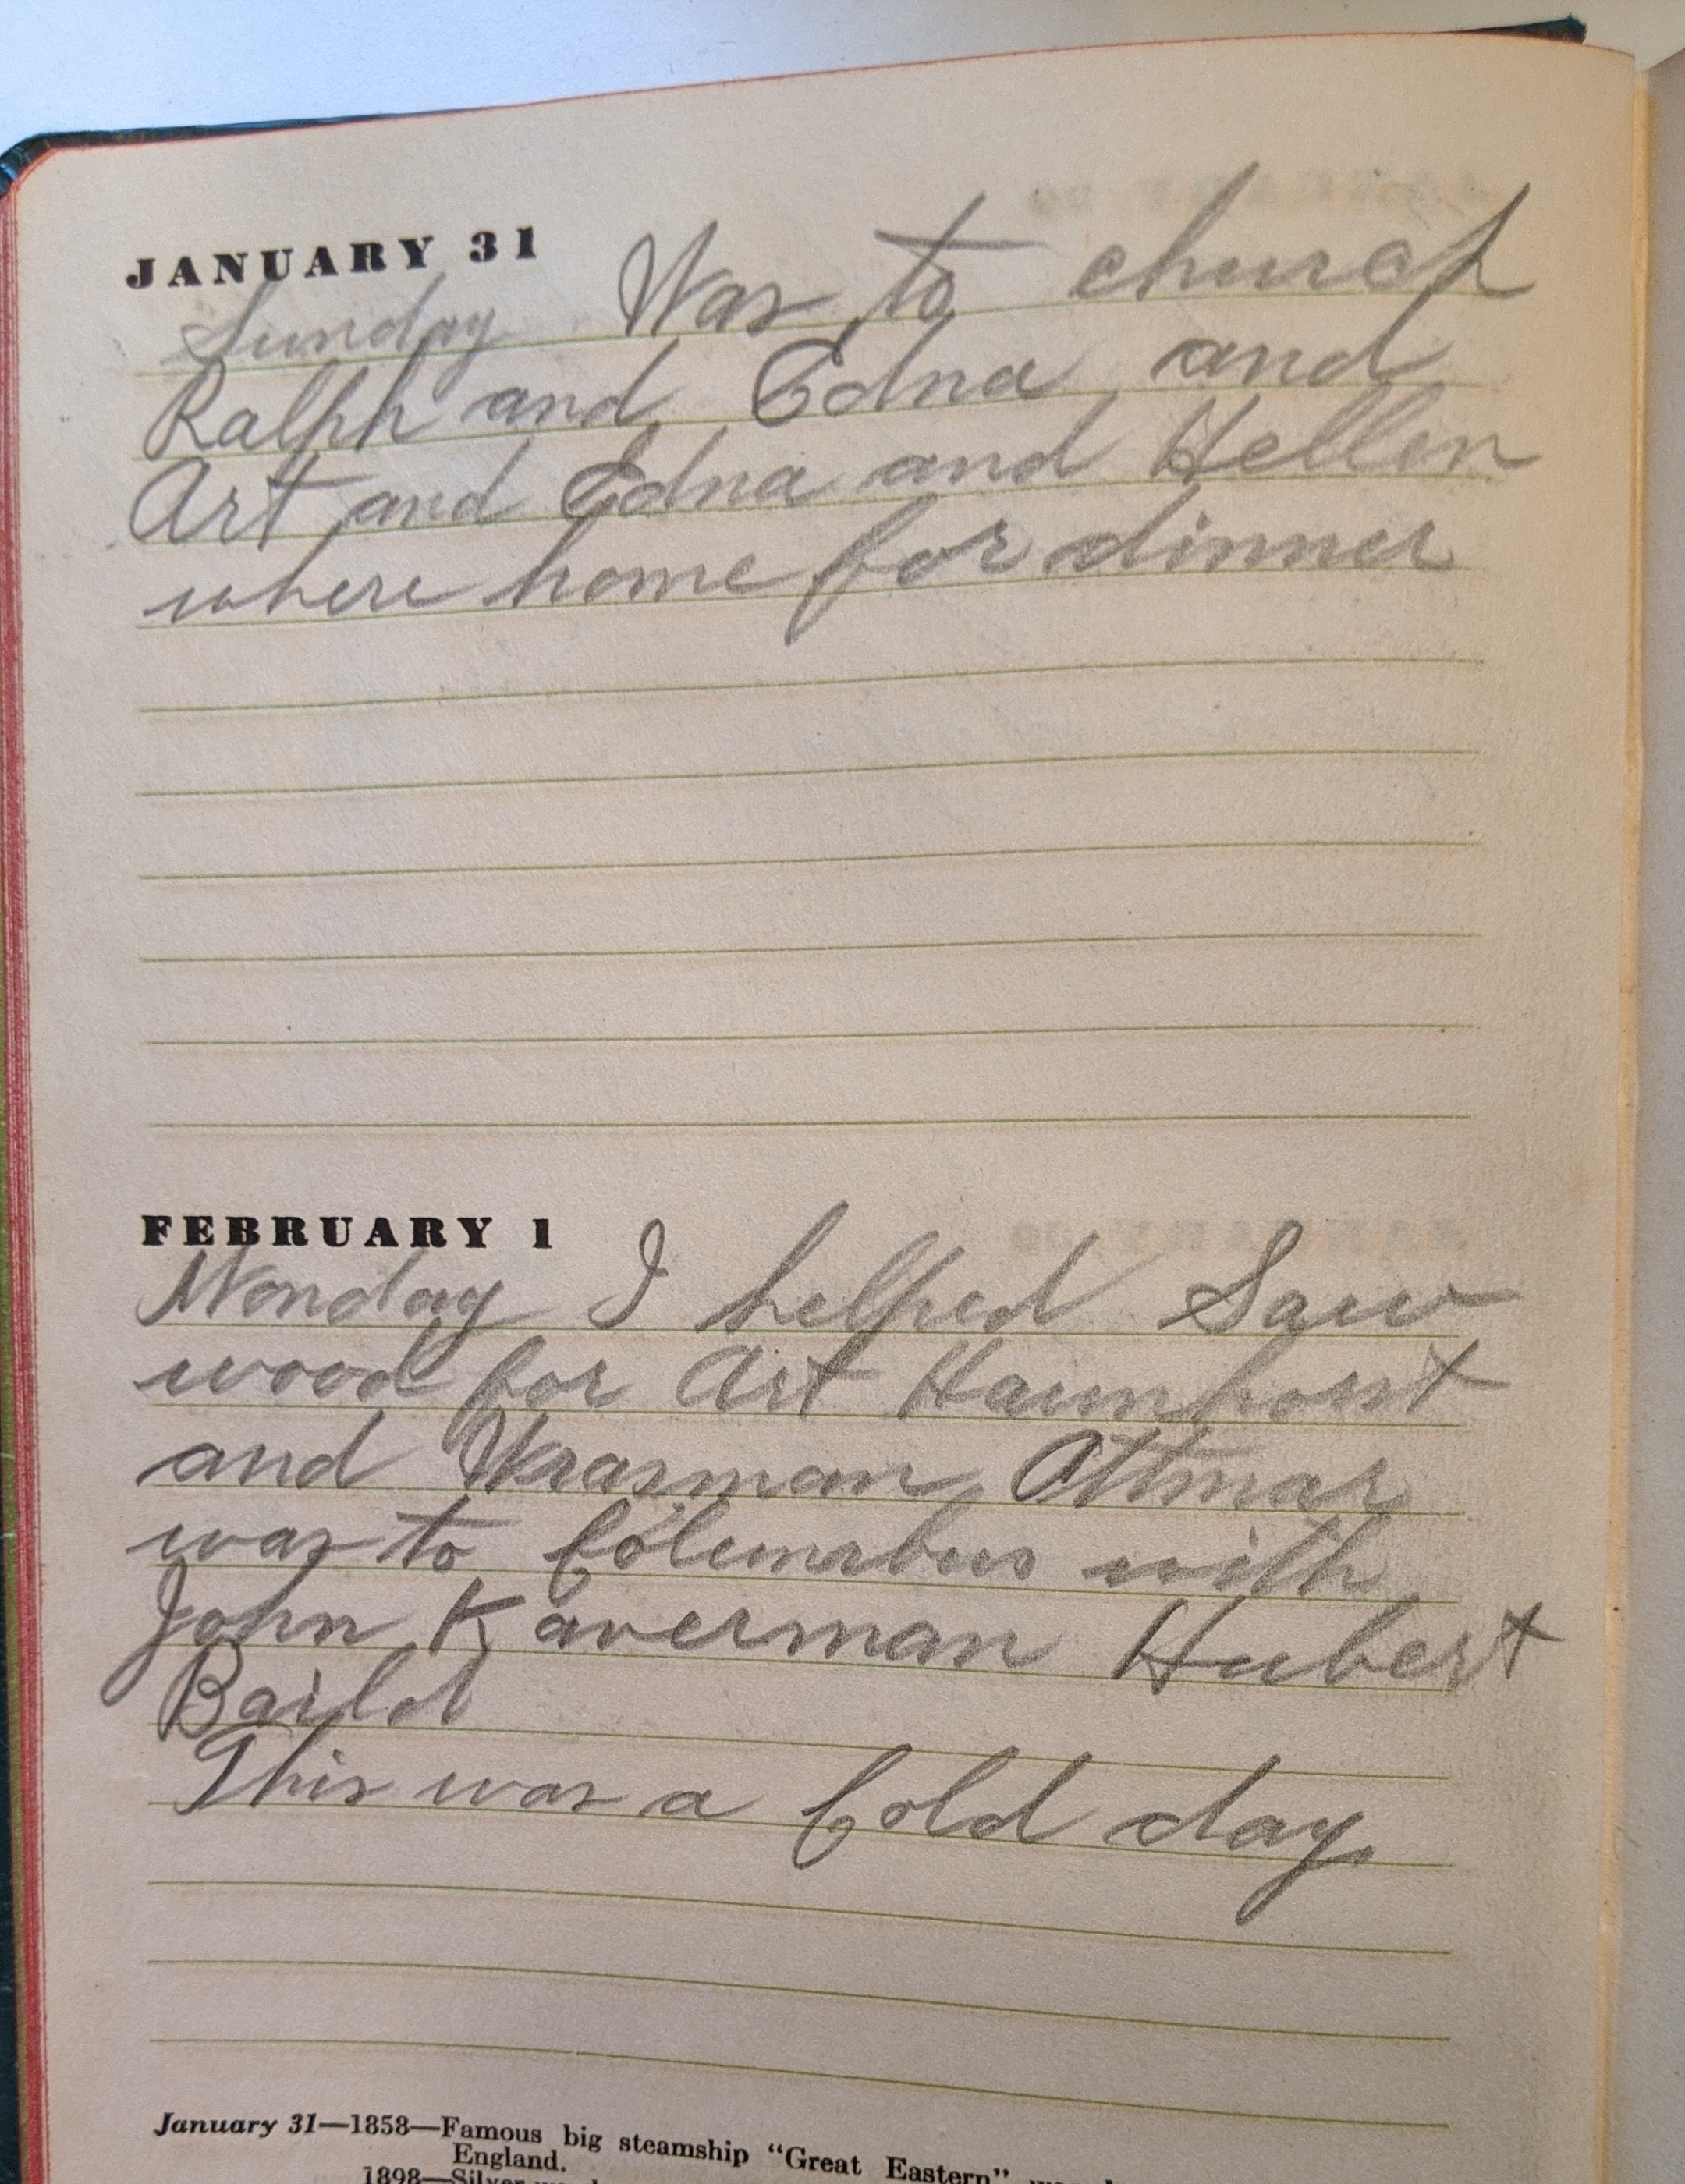 JANUARY 31 Was to church
Sunday
Ralph and Edna and
Art and Edna and Hellen
where home for dinner
FEBRUARY 1
Monday I helped Saw
wood for Art Haunhorst
and Wrasman Ottmar
was to Columbus with
John Kaverman Hubert
This was a Cold day.
January 31—1858—Famous big steamship "Great Eastern"
England.
1898—Silver